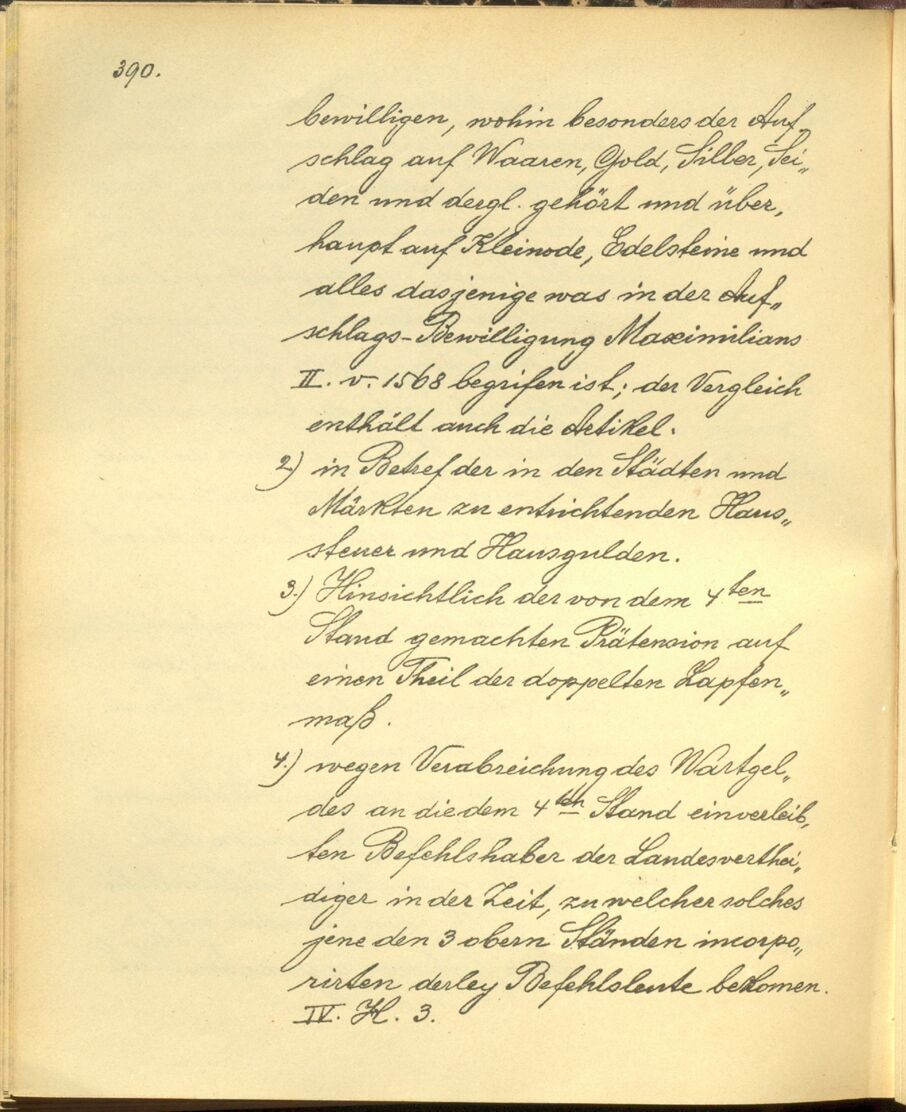 390.
bewilligen, wohin besonders der Auf„
schlag auf Waaren, Gold, Silber, Sei„
den und dergl. gehört und über„
haupt auf Kleinode, Edelsteine und
alles dasjenige was in der Auf„
schlags-Bewilligung Maximilians
II. v. 1568 begrifen ist; der Vergleich
enthält auch die Artikel.
2.) in Betref der in den Städten und
Märkten zu entrichtenden Haus„
steuer und Hausgulden.
3.) Hinsichtlich der von dem 4ten
Stand gemachten Prätension auf
einen Theil der doppelten Zapfen„
maß.
4.) wegen Verabreichung des Wartgel„
des an die dem 4ten Stand einverleib„
ten Befehlshaber der Landesverthei„
diger in der Zeit, zu welcher solches
jene den 3 obern Ständen incorpo„
rirten derley Befehlsleute bekomen.
IV. H. 3.